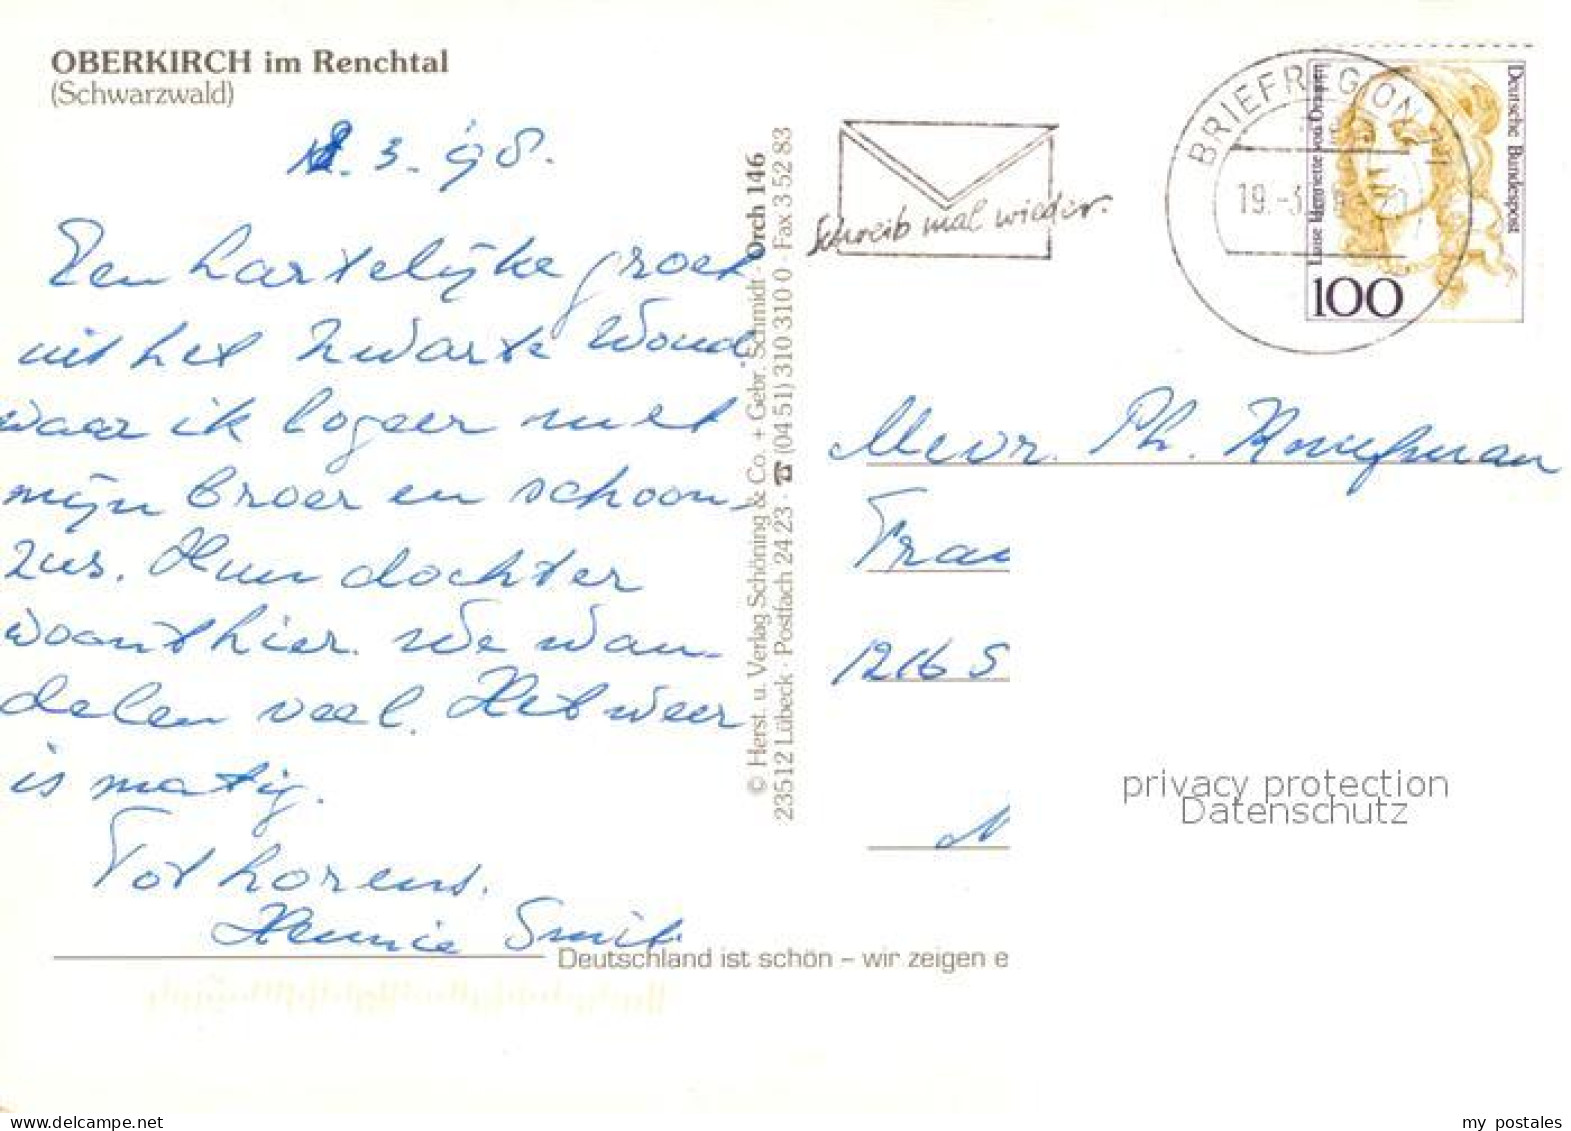 OBERKIRCH im Renchtal
(Schwarzwald)
3. '98.
Een hartelijke groet
uit het Zwarte Woud
waar ik logeer met
mijn broer en schoon-
zus. Hun dochter
woont hier. We wan-
delen veel. Het weer
is matig.
Tot horens.
Hennie Smit
© Herst. u. Verlag Schöning & Co. + Gebr. Schmidt · Orch 146
23512 Lübeck · Postfach 24 23 · ☎ (04 51) 310 310 0 · Fax 3 52 83
Schreib mal wieder.
BRIEFREGION
19.-3.
Luise Henriette von Oranien
Deutsche Bundespost
100
Mevr. Ph.
Fra
1216 S
privacy protection
Datenschutz
Deutschland ist schön – wir zeigen e
www.delcampe.net
my_postales